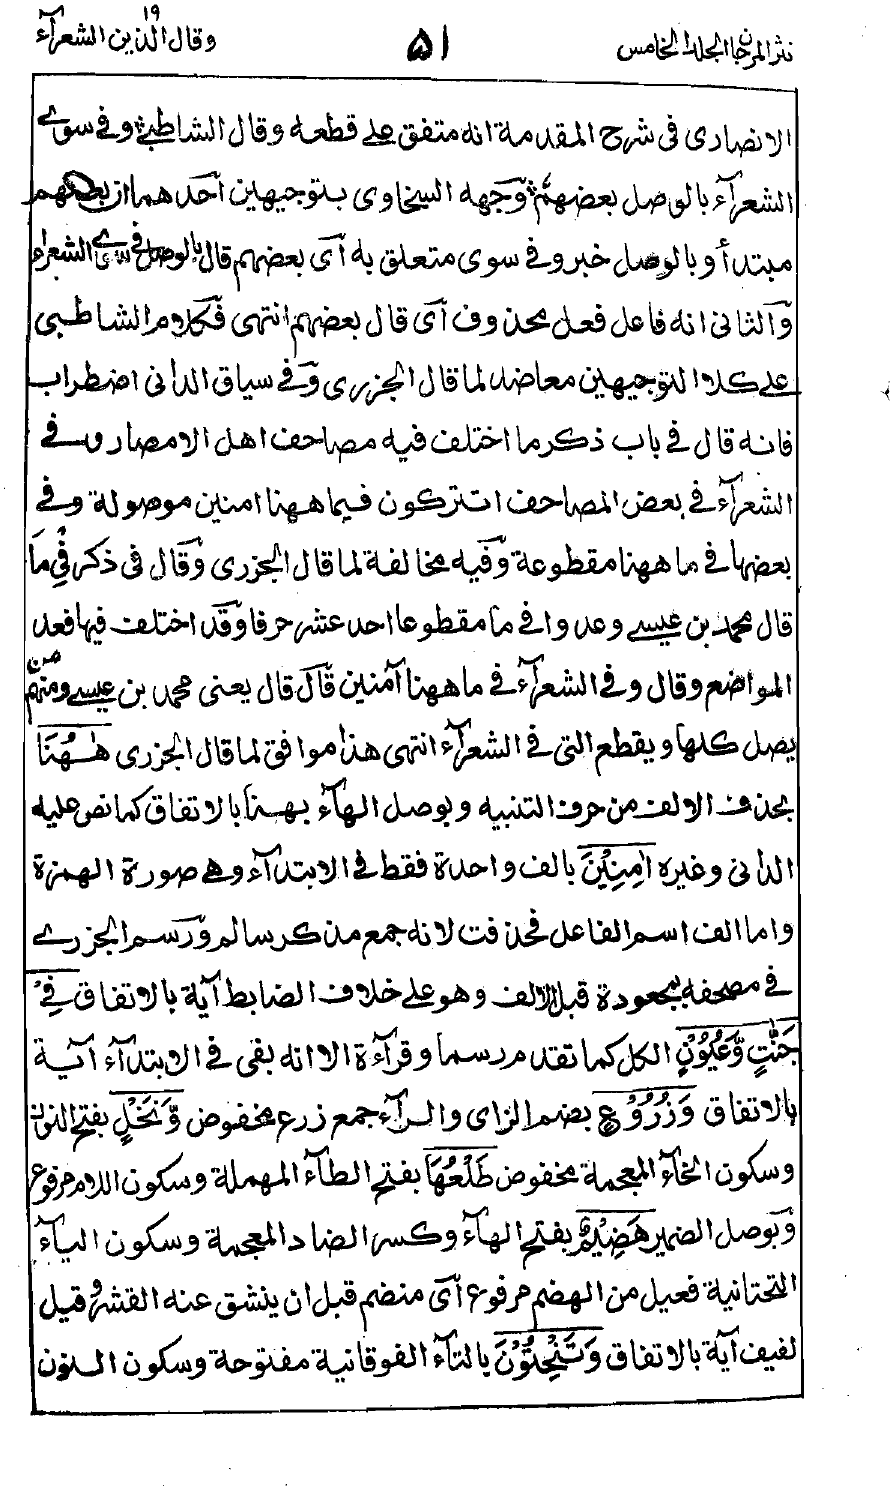 نثر المرجان المجلد الخامس ٥١ وقال الذين ١٩ الشعرآء
الانصاری فی شرح المقدمة انه متفق علی قطعه وقال الشاطبی وفی سوی
الشعرآء بالوصل بعضهم وجهه السخاوی بتوجیهین احدهما ان بعضهم
مبتدأ وبالوصل خبر وفی سوی متعلق به آی بعضهم قال بالوصل فی سوی الشعراء
وآلثانی انه فاعل فعل محذوف آی قال بعضهم انتهی فکلام الشاطبی
علی کلا التوجیهین معاضد لما قال الجزری وفی سیاق الدانی اضطراب
فانه قال فی باب ذکر ما اختلف فیه مصاحف اهل الامصار وفی
الشعرآء فی بعض المصاحف اتترکون فیما ههنا امنین موصولة وفی
بعضها فی ما ههنا مقطوعة وفیه مخالفة لما قال الجزری وقال فی ذکر فِیْ مَا
قال محمد بن عیسی وعدوا فی ما مقطوعا احد عشر حرفا وقد اختلف فیها فعد
المواضع وقال وفی الشعرآء فی ما ههنا آمنین قال قال یعنی محمد بن عیسی ومنهم من
یصل کلها ویقطع التی فی الشعرآء انتهی هذا موافق لما قال الجزری هٰهُنَا
بحذف الالف من حرف التنبیه وبوصل الهآء بهنا بالاتفاق کما نص علیه
الدانی وغیره اٰمِنِیْنَ بالف واحدة فقط فی الابتدآء وهی صورة الهمزة
واما الف اسم الفاعل فحذفت لانه جمع مذکر سالم ورسم الجزری
فی مصحفه بجعودة قبل الالف وهو علی خلاف الضابط آیة بالاتفاق فِیْ
جَنّٰتٍ وَّعُیُوْنٍ الکل کما تقدم رسما وقرآءة الا انه بفی فی الابتدآء آیة
بالاتفاق وَزُرُوْعٍ بضم الزای والرآء جمع زرع مخفوض وَّنَخْلٍ بفتح النون
وسکون الخآء المعجمة مخفوض طَلْعُهَا بفتح الطآء المهملة وسکون اللام مرفوع
وبوصل الضمیر هَضِیْمٌ بفتح الهآء وکسر الضاد المعجمة وسکون الیآء
التحتانیة فعیل من الهضم مرفوع آی منضم قبل ان ینشق عنه القشر وقیل
لفیف آیة بالاتفاق وَتَنْحِتُوْنَ بالتآء الفوقانیة مفتوحة وسکون النون